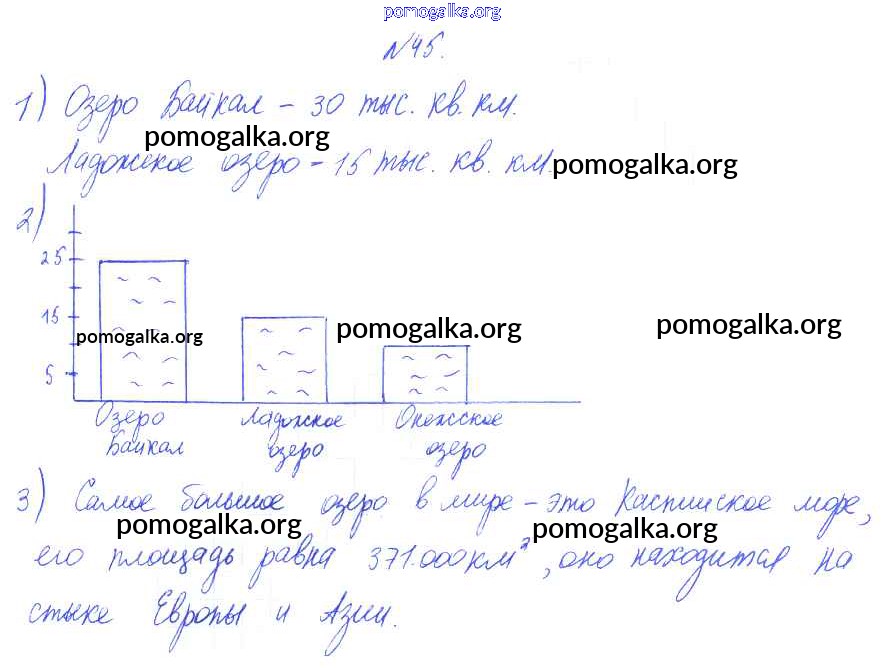 pomogalka.org
№45.
1) Озеро Байкал – 30 тыс. кв. км.
pomogalka.org
Ладожское озеро – 15 тыс. кв. км.
pomogalka.org
2)
25
15
5
pomogalka.org
pomogalka.org
pomogalka.org
Озеро Байкал
Ладожское озеро
Онежское озеро
3) Самое большое озеро в мире – это Каспийское море,
pomogalka.org
pomogalka.org
его площадь равна 371.000 км², оно находится на
стыке Европы и Азии.